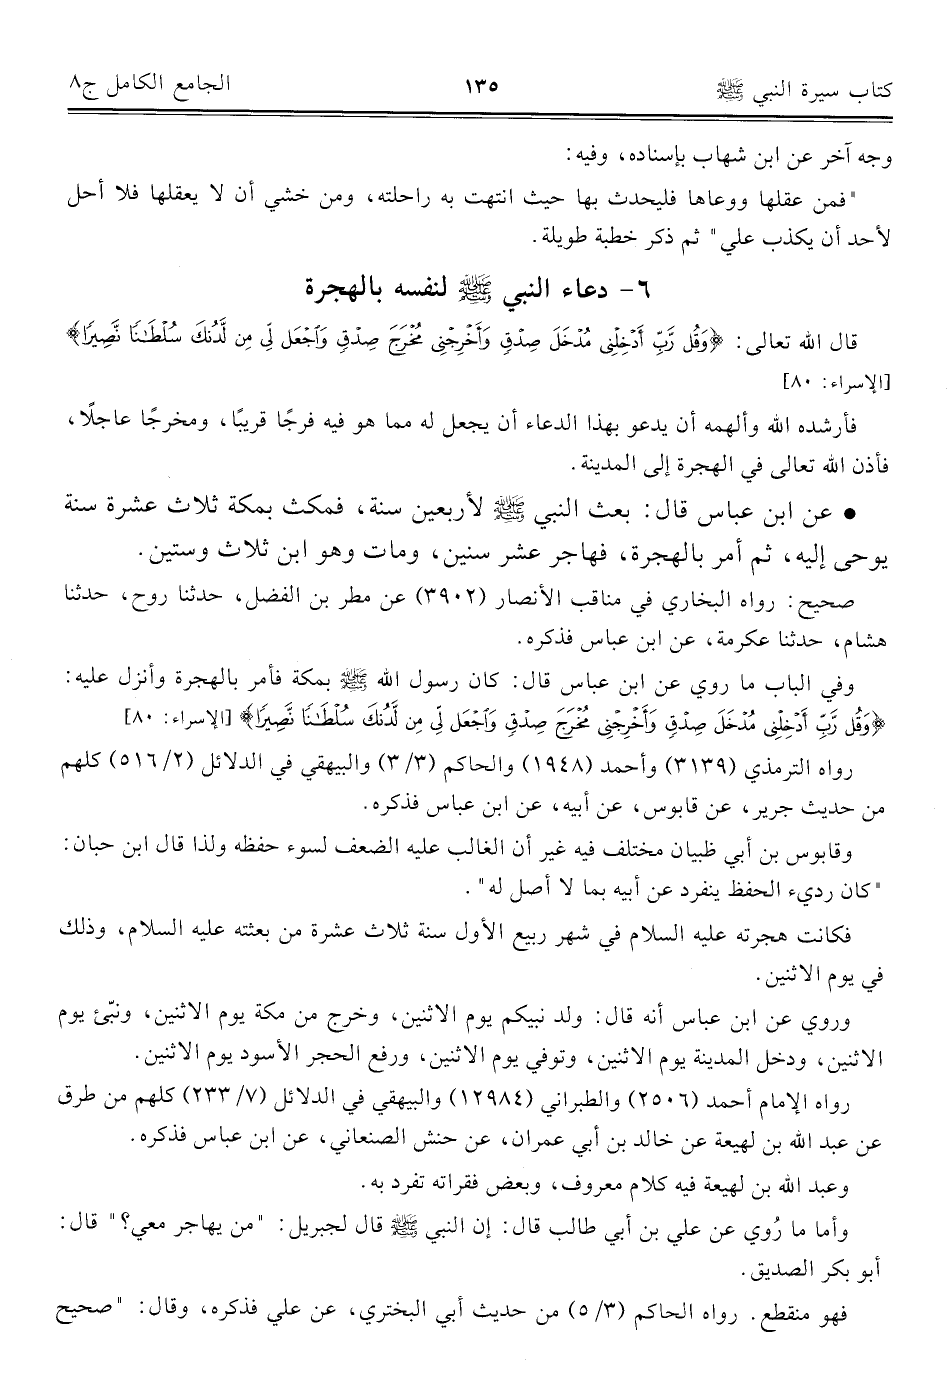 كتاب سيرة النبي ﷺ ١٣٥ الجامع الكامل ج٨
وجه آخر عن ابن شهاب بإسناده، وفيه:
"فمن عقلها ووعاها فليحدث بها حيث انتهت به راحلته، ومن خشي أن لا يعقلها فلا أحل
لأحد أن يكذب علي" ثم ذكر خطبة طويلة.
٦- دعاء النبي ﷺ لنفسه بالهجرة
قال الله تعالى: ﴿وَقُل رَّبِّ أَدْخِلْنِي مُدْخَلَ صِدْقٍ وَأَخْرِجْنِي مُخْرَجَ صِدْقٍ وَٱجْعَل لِّي مِن لَّدُنكَ سُلْطَٰنًا نَّصِيرًا﴾
[الإسراء: ٨٠]
فأرشده الله وألهمه أن يدعو بهذا الدعاء أن يجعل له مما هو فيه فرجًا قريبًا، ومخرجًا عاجلًا،
فأذن الله تعالى في الهجرة إلى المدينة.
● عن ابن عباس قال: بعث النبي ﷺ لأربعين سنة، فمكث بمكة ثلاث عشرة سنة
يوحى إليه، ثم أمر بالهجرة، فهاجر عشر سنين، ومات وهو ابن ثلاث وستين.
صحيح: رواه البخاري في مناقب الأنصار (٣٩٠٢) عن مطر بن الفضل، حدثنا روح، حدثنا
هشام، حدثنا عكرمة، عن ابن عباس فذكره.
وفي الباب ما روي عن ابن عباس قال: كان رسول الله ﷺ بمكة فأمر بالهجرة وأنزل عليه:
﴿وَقُل رَّبِّ أَدْخِلْنِي مُدْخَلَ صِدْقٍ وَأَخْرِجْنِي مُخْرَجَ صِدْقٍ وَٱجْعَل لِّي مِن لَّدُنكَ سُلْطَٰنًا نَّصِيرًا﴾ [الإسراء: ٨٠]
رواه الترمذي (٣١٣٩) وأحمد (١٩٤٨) والحاكم (٣/٣) والبيهقي في الدلائل (٢/٥١٦) كلهم
من حديث جرير، عن قابوس، عن أبيه، عن ابن عباس فذكره.
وقابوس بن أبي ظبيان مختلف فيه غير أن الغالب عليه الضعف لسوء حفظه ولذا قال ابن حبان:
"كان رديء الحفظ ينفرد عن أبيه بما لا أصل له".
فكانت هجرته عليه السلام في شهر ربيع الأول سنة ثلاث عشرة من بعثته عليه السلام، وذلك
في يوم الاثنين.
وروي عن ابن عباس أنه قال: ولد نبيكم يوم الاثنين، وخرج من مكة يوم الاثنين، ونبّئ يوم
الاثنين، ودخل المدينة يوم الاثنين، وتوفي يوم الاثنين، ورفع الحجر الأسود يوم الاثنين.
رواه الإمام أحمد (٢٥٠٦) والطبراني (١٢٩٨٤) والبيهقي في الدلائل (٧/٢٣٣) كلهم من طرق
عن عبد الله بن لهيعة عن خالد بن أبي عمران، عن حنش الصنعاني، عن ابن عباس فذكره.
وعبد الله بن لهيعة فيه كلام معروف، وبعض فقراته تفرد به.
وأما ما رُوي عن علي بن أبي طالب قال: إن النبي ﷺ قال لجبريل: "من يهاجر معي؟" قال:
أبو بكر الصديق.
فهو منقطع. رواه الحاكم (٣/٥) من حديث أبي البختري، عن علي فذكره، وقال: "صحيح